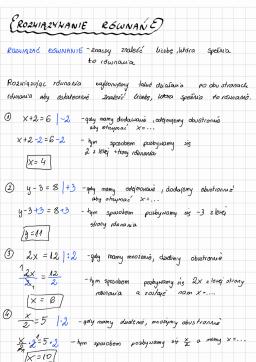 ROZWIĄZYWANIE RÓWNAŃ
ROZWIĄZAĆ RÓWNANIE - znaczy znaleźć liczbę, która spełnia
to równanie.
Rozwiązując równania wykonujemy takie działania po obu stronach
równania aby ostatecznie znaleźć liczbę, która spełnia to równanie.
① x+2=6 |-2 - gdy mamy dodawanie, odejmujemy obustronnie
aby otrzymać x=...
x+2-2=6-2 - tym sposobem pozbywamy się
2 z lewej strony równania
x=4
② y-3=8 |+3 - gdy mamy odejmowanie, dodajemy obustronnie
aby otrzymać x=...
y-3+3=8+3 - tym sposobem pozbywamy się -3 z lewej
strony równania
y=11
③ 2x=12 |:2 - gdy mamy mnożenie, dzielimy obustronnie
2x/2=12/2 - tym sposobem pozbywamy się 2x z lewej strony
równania a zostaje nam x=...
x=6
④ x/2=5 |·2 - gdy mamy dzielenie, mnożymy obustronnie
x/2·2=5·2 - tym sposobem pozbywamy się x/2 a mamy x=...
x=10